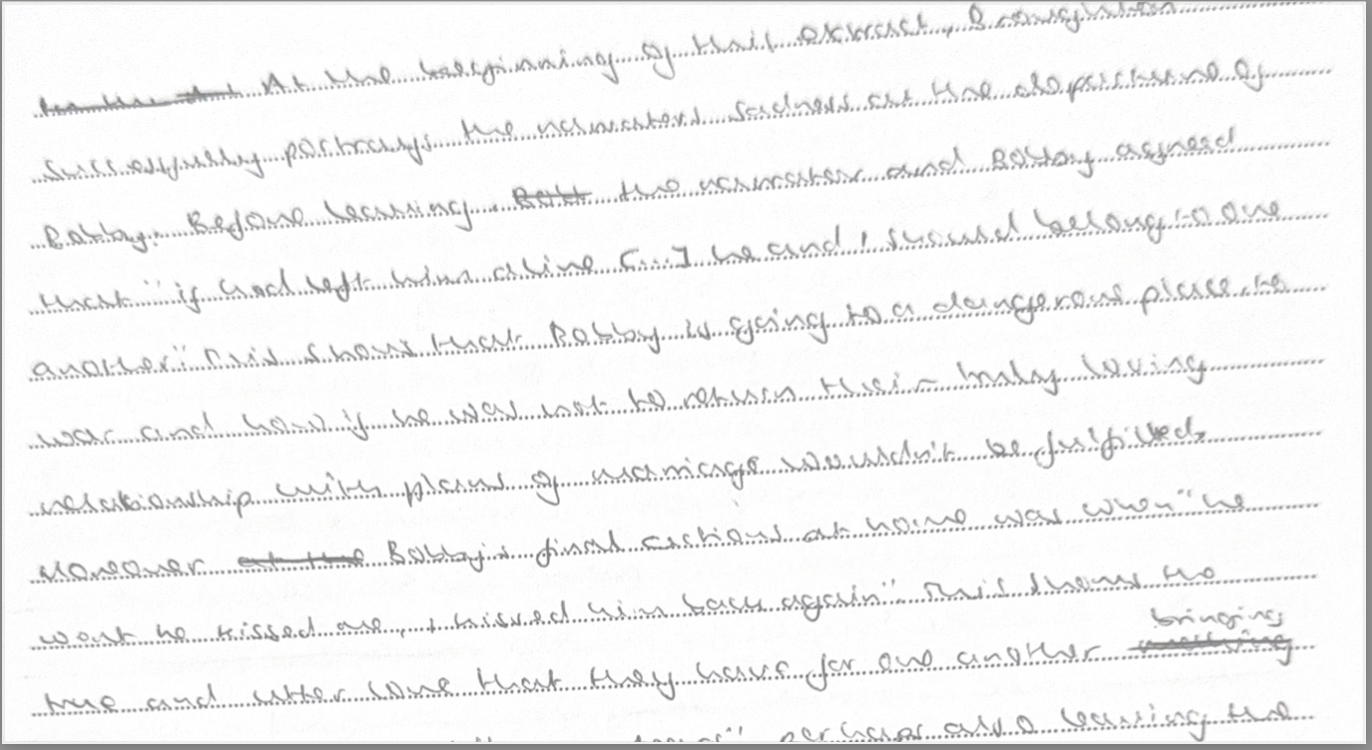 At the beginning of this extract, Broughton
successfully portrays the narrators sadness at the departure of
Bobby. Before leaving, the narrator and Bobby agreed
that "if God left him alive [...] he and I should belong to one
another". This shows that Bobby is going to a dangerous place, to
war and how if he was not to return their truly loving
relationship with plans of marriage wouldn't be fulfilled.
Moreover Bobby's final actions at home was when "he
went he kissed me, I kissed him back again". This shows the
true and utter love that they have for one another bringing
perhaps also leaving the